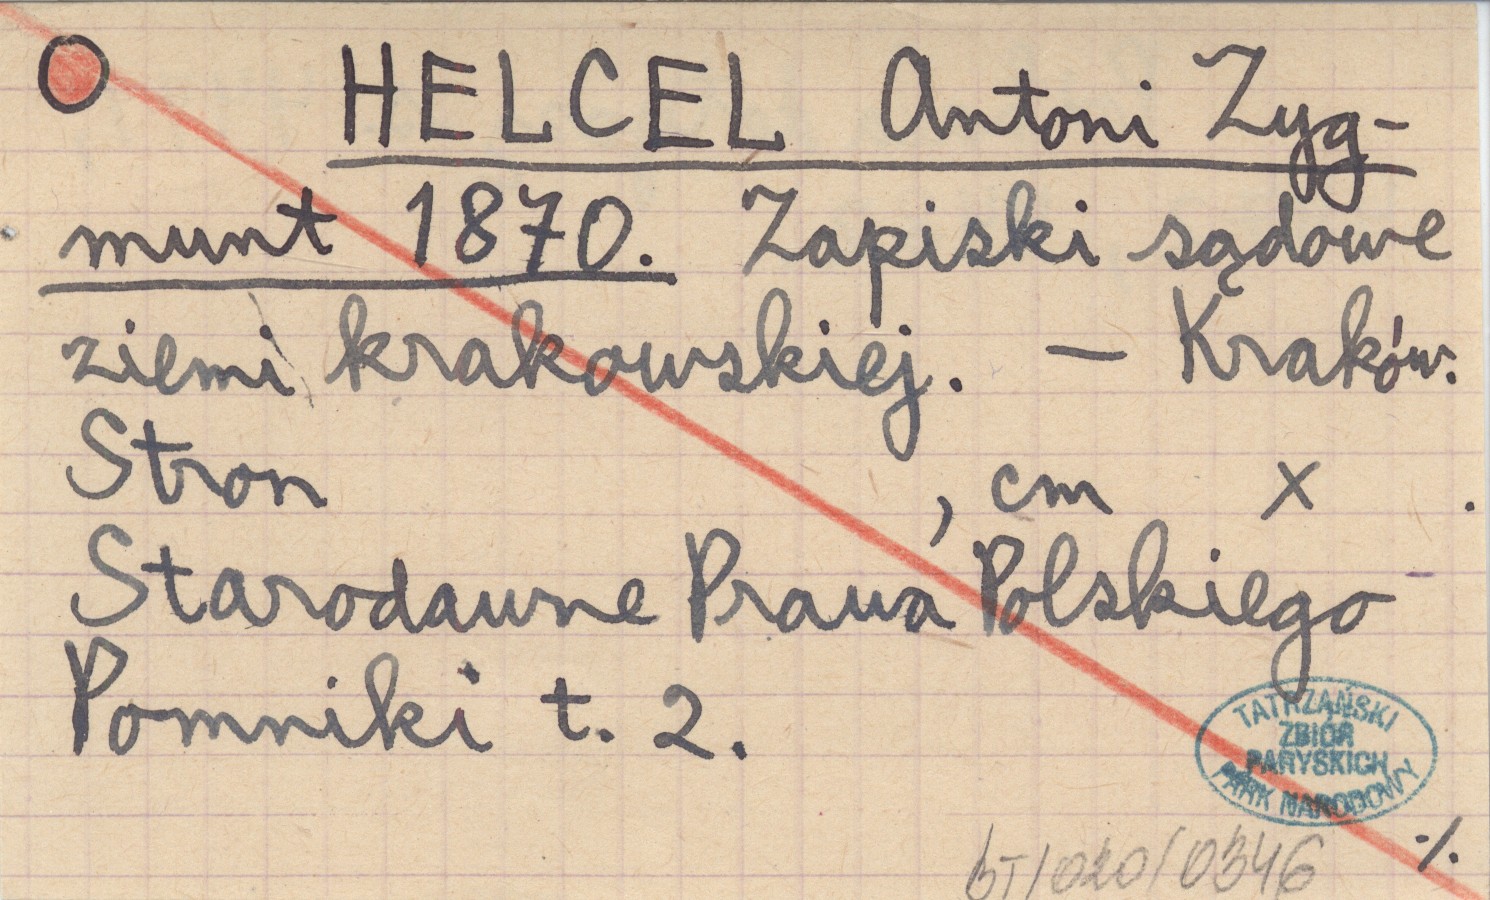 HELCEL Antoni Zyg-
munt 1870. Zapiski sądowe
ziemi krakowskiej. — Kraków.
Stron , cm x .
Starodawne Prawa Polskiego
Pomniki t. 2.
TATRZAŃSKI
ZBIÓR
PARYSKICH
PARK NARODOWY
./.
bT/020/0346